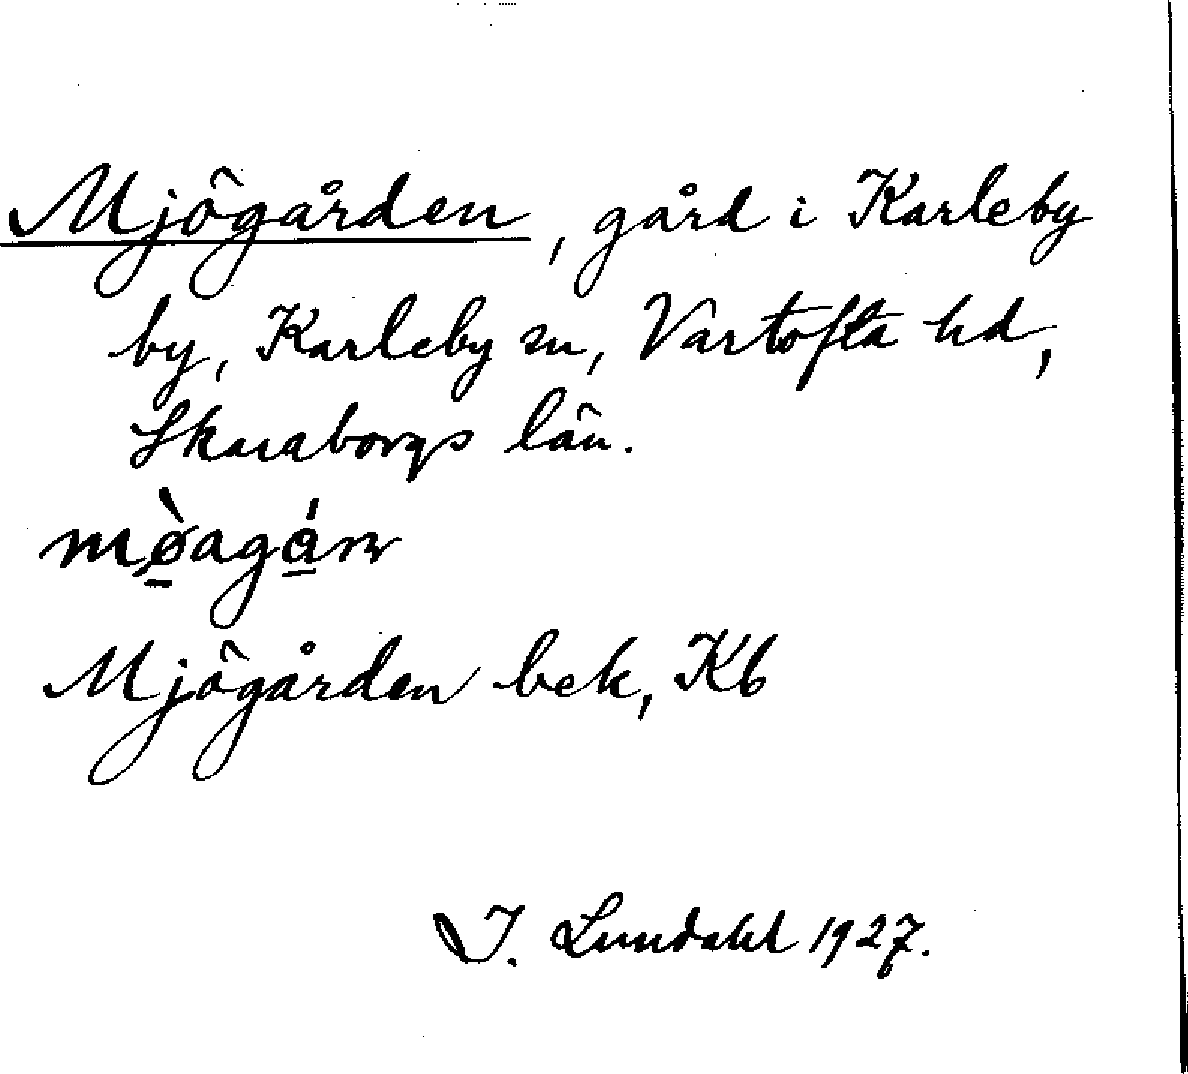 Mjögården, gård i Karleby
by, Karleby sn, Vartofta hd,
Skaraborgs län.
Mjögården bek, Kb
I. Lundahl 1927.